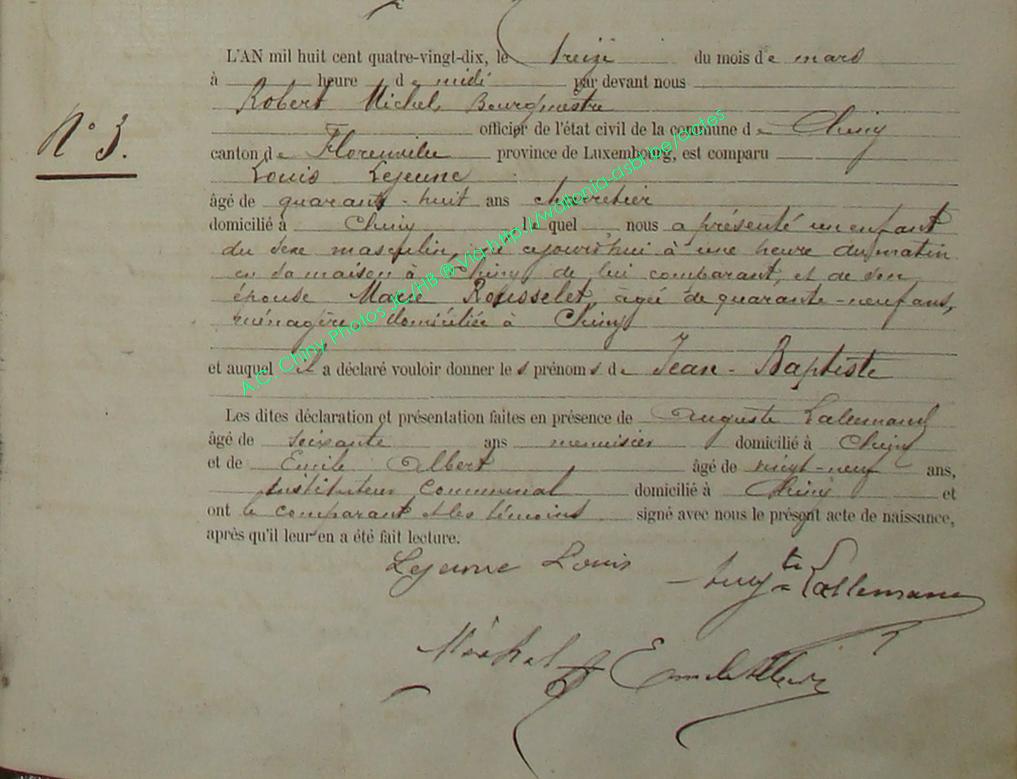 L'AN mil huit cent quatre-vingt-dix, le treize du mois de mars
à heure de midi par devant nous
Robert Michel Bourgmestre
officier de l'état civil de la commune de Chiny
N° 3.
canton de Florenville province de Luxembourg, est comparu
Louis Lejeune
âgé de quarante-huit ans charretier
domicilié à Chiny le quel nous a présenté un enfant
du sexe masculin, né cejourd'hui à une heure du matin
en sa maison à Chiny de lui comparant, et de son
épouse Marie Rousselet, âgée de quarante-neuf ans,
ménagère domiciliée à Chiny
et auquel il a déclaré vouloir donner les prénoms de Jean-Baptiste
Les dites déclaration et présentation faites en présence de Auguste Lallemand
âgé de soixante ans menuisier domicilié à Chiny
et de Emile Albert âgé de vingt-neuf ans,
Instituteur communal domicilié à Chiny et
ont le comparant et les témoins signé avec nous le présent acte de naissance,
après qu'il leur en a été fait lecture.
Lejeune Louis
Augte Lallemand
Michel R Emile Albert
A.C. Chiny Photos JG/HB ® via http://wallonia-asbl.be/actes